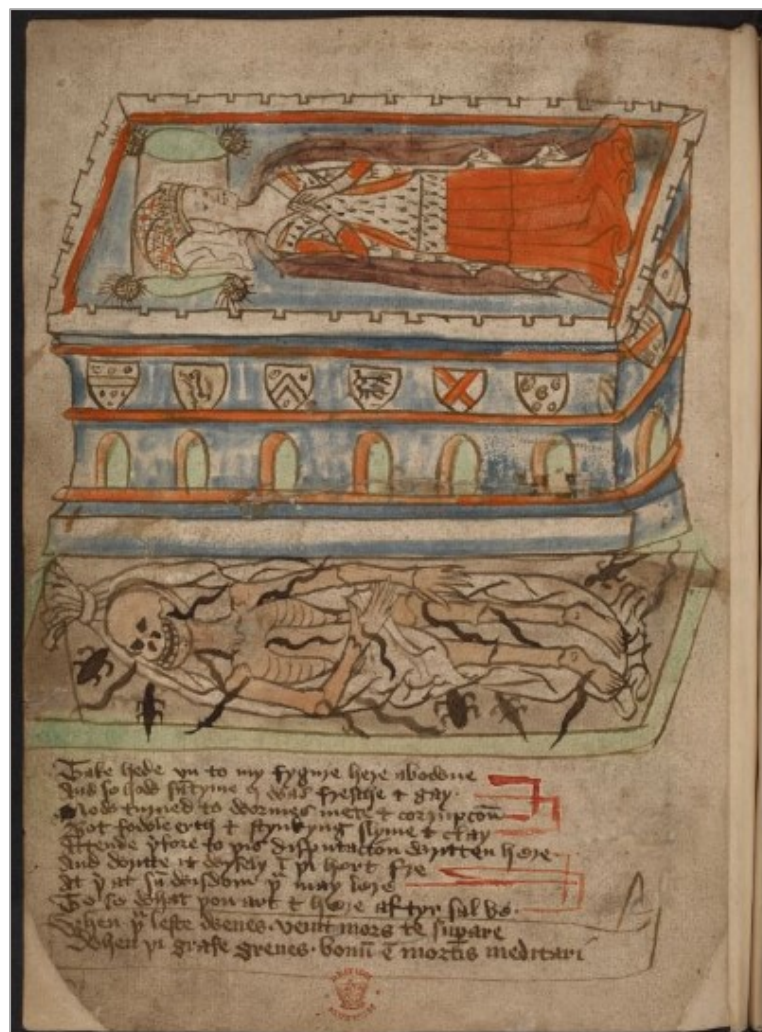 Take hede vn to my fygure here abowne
And se how sūtyme I was fresche & gay
Now turned to wormes mete & corrupcoū
Bot fowle erth & stynkyng slyme & clay
Attende þfore to þis disputacion written here
And writte it wysely ī þi hert fre
At þ at sū wisdom þ may lere
To se what þou art & here aftyr sal be
When þ leste wenes, venit mors te supare
When þi grafe greues, bonū ē mortis meditari